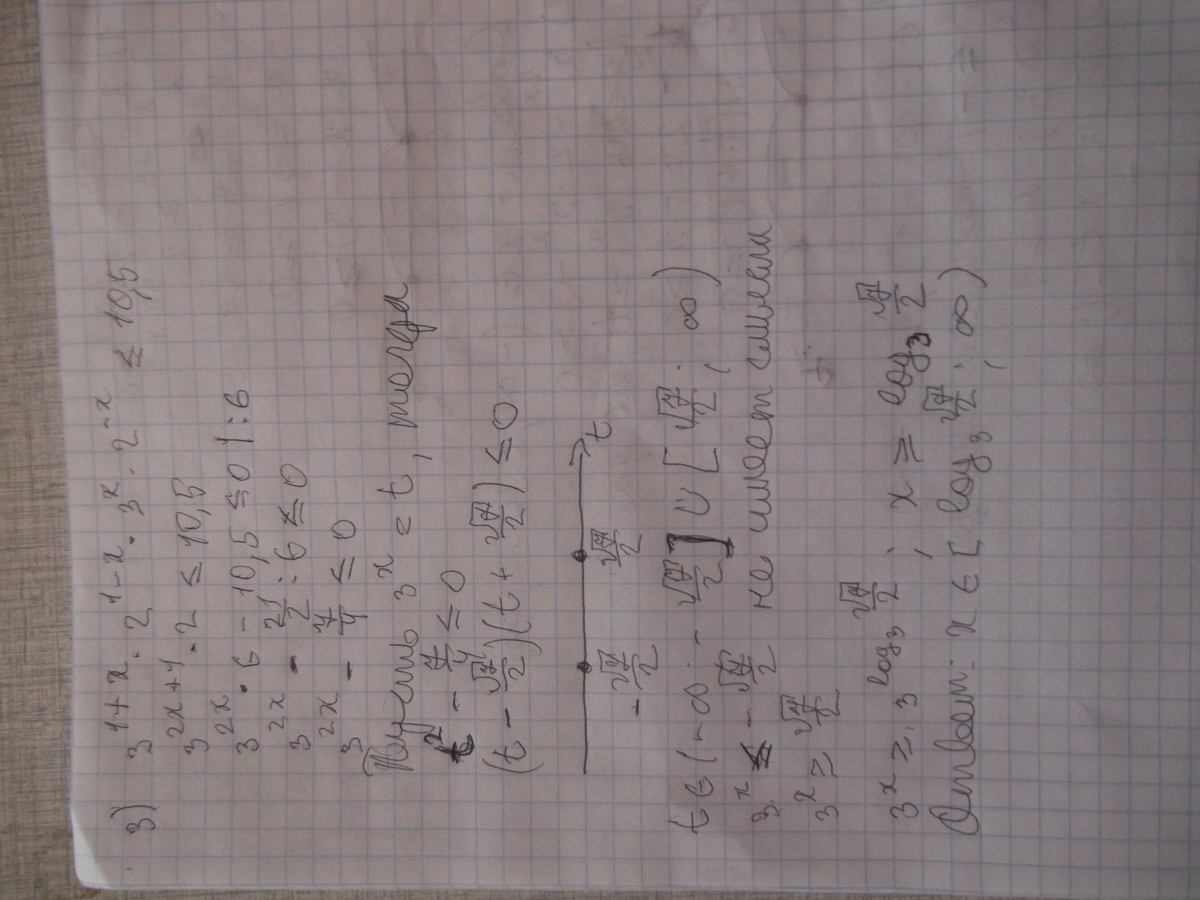 3) 3^{1+x} · 2^{1-x} · 3^x · 2^{-x} ≤ 10,5
3^{2x+1} · 2 ≤ 10,5
3^{2x} · 6 - 10,5 ≤ 0 | : 6
3^{2x} - \frac{21}{2} : 6 ≤ 0
3^{2x} - \frac{7}{4} ≤ 0
Пусть 3^x = t, тогда
t^2 - \frac{7}{4} ≤ 0
(t - \frac{\sqrt{7}}{2})(t + \frac{\sqrt{7}}{2}) ≤ 0
-\frac{\sqrt{7}}{2} \frac{\sqrt{7}}{2} t
t ∈ (-∞ · -\frac{\sqrt{7}}{2}] ∪ [\frac{\sqrt{7}}{2}; ∞)
3^x ≤ -\frac{\sqrt{7}}{2} не имеет смысла
3^x ≥ \frac{\sqrt{7}}{2}
3^x ≥ 3^{log_3 \frac{\sqrt{7}}{2}}; x ≥ log_3 \frac{\sqrt{7}}{2}
Ответ: x ∈ [log_3 \frac{\sqrt{7}}{2}; ∞)